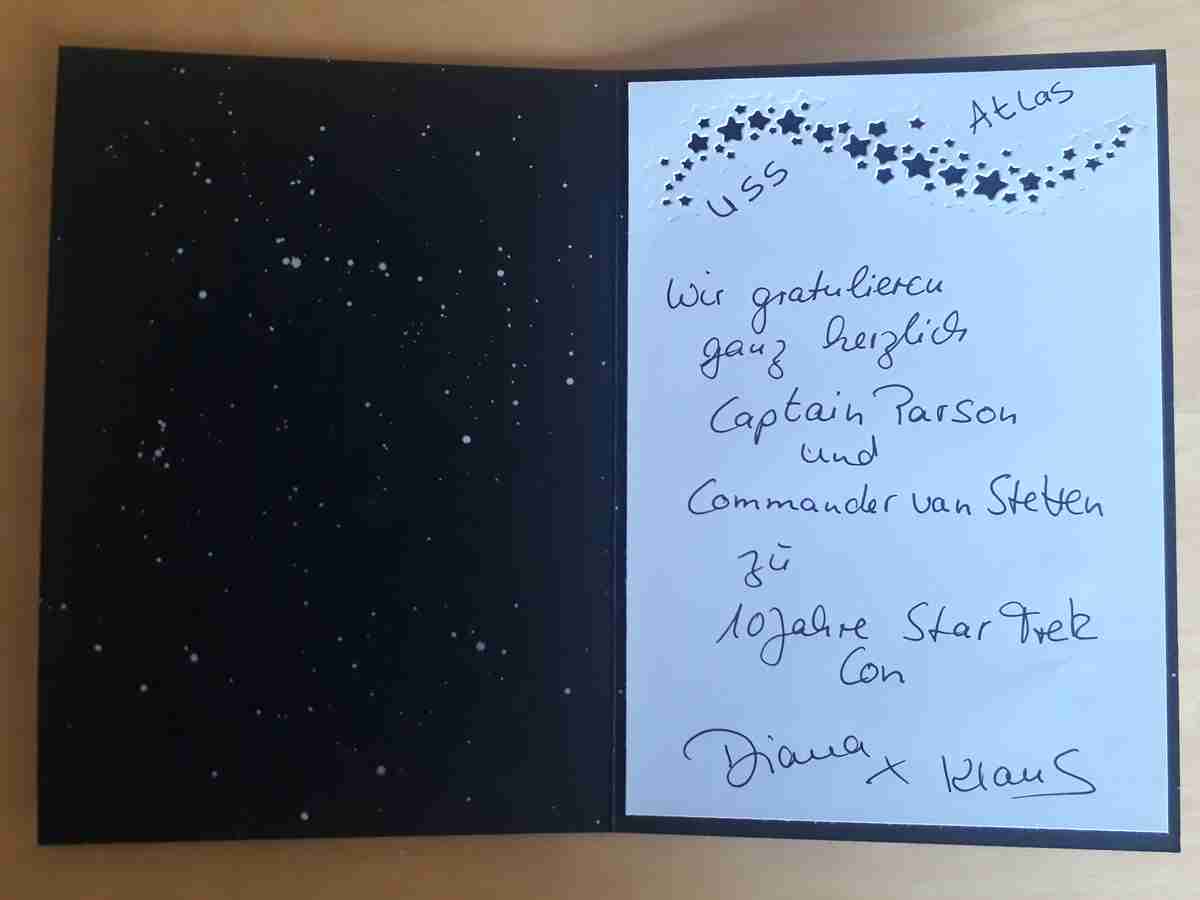 USS Atlas
Wir gratulieren
ganz herzlich
Captain Parson
und
Commander van Stetten
zu
10 Jahre Star Trek
Con
Diana + Klaus